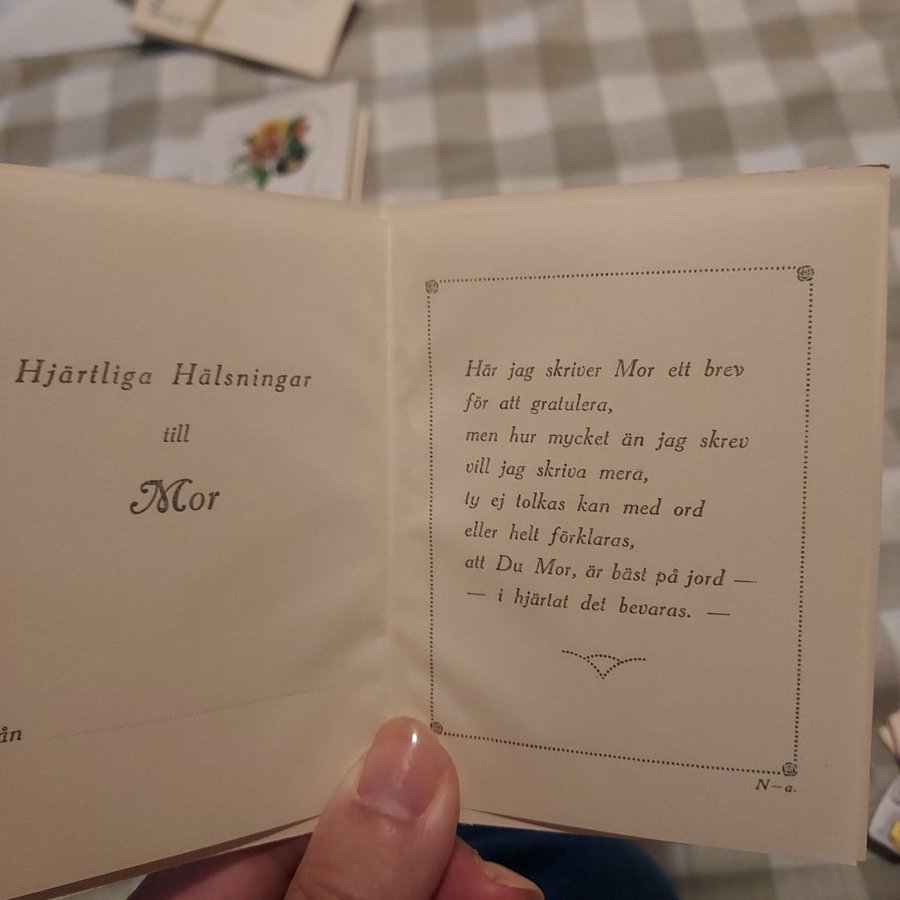 Hjärtliga Hälsningar
till
Mor
ån
Här jag skriver Mor ett brev
för att gratulera,
men hur mycket än jag skrev
vill jag skriva mera,
ty ej tolkas kan med ord
eller helt förklaras,
att Du Mor, är bäst på jord —
— i hjärtat det bevaras. —
N—a.